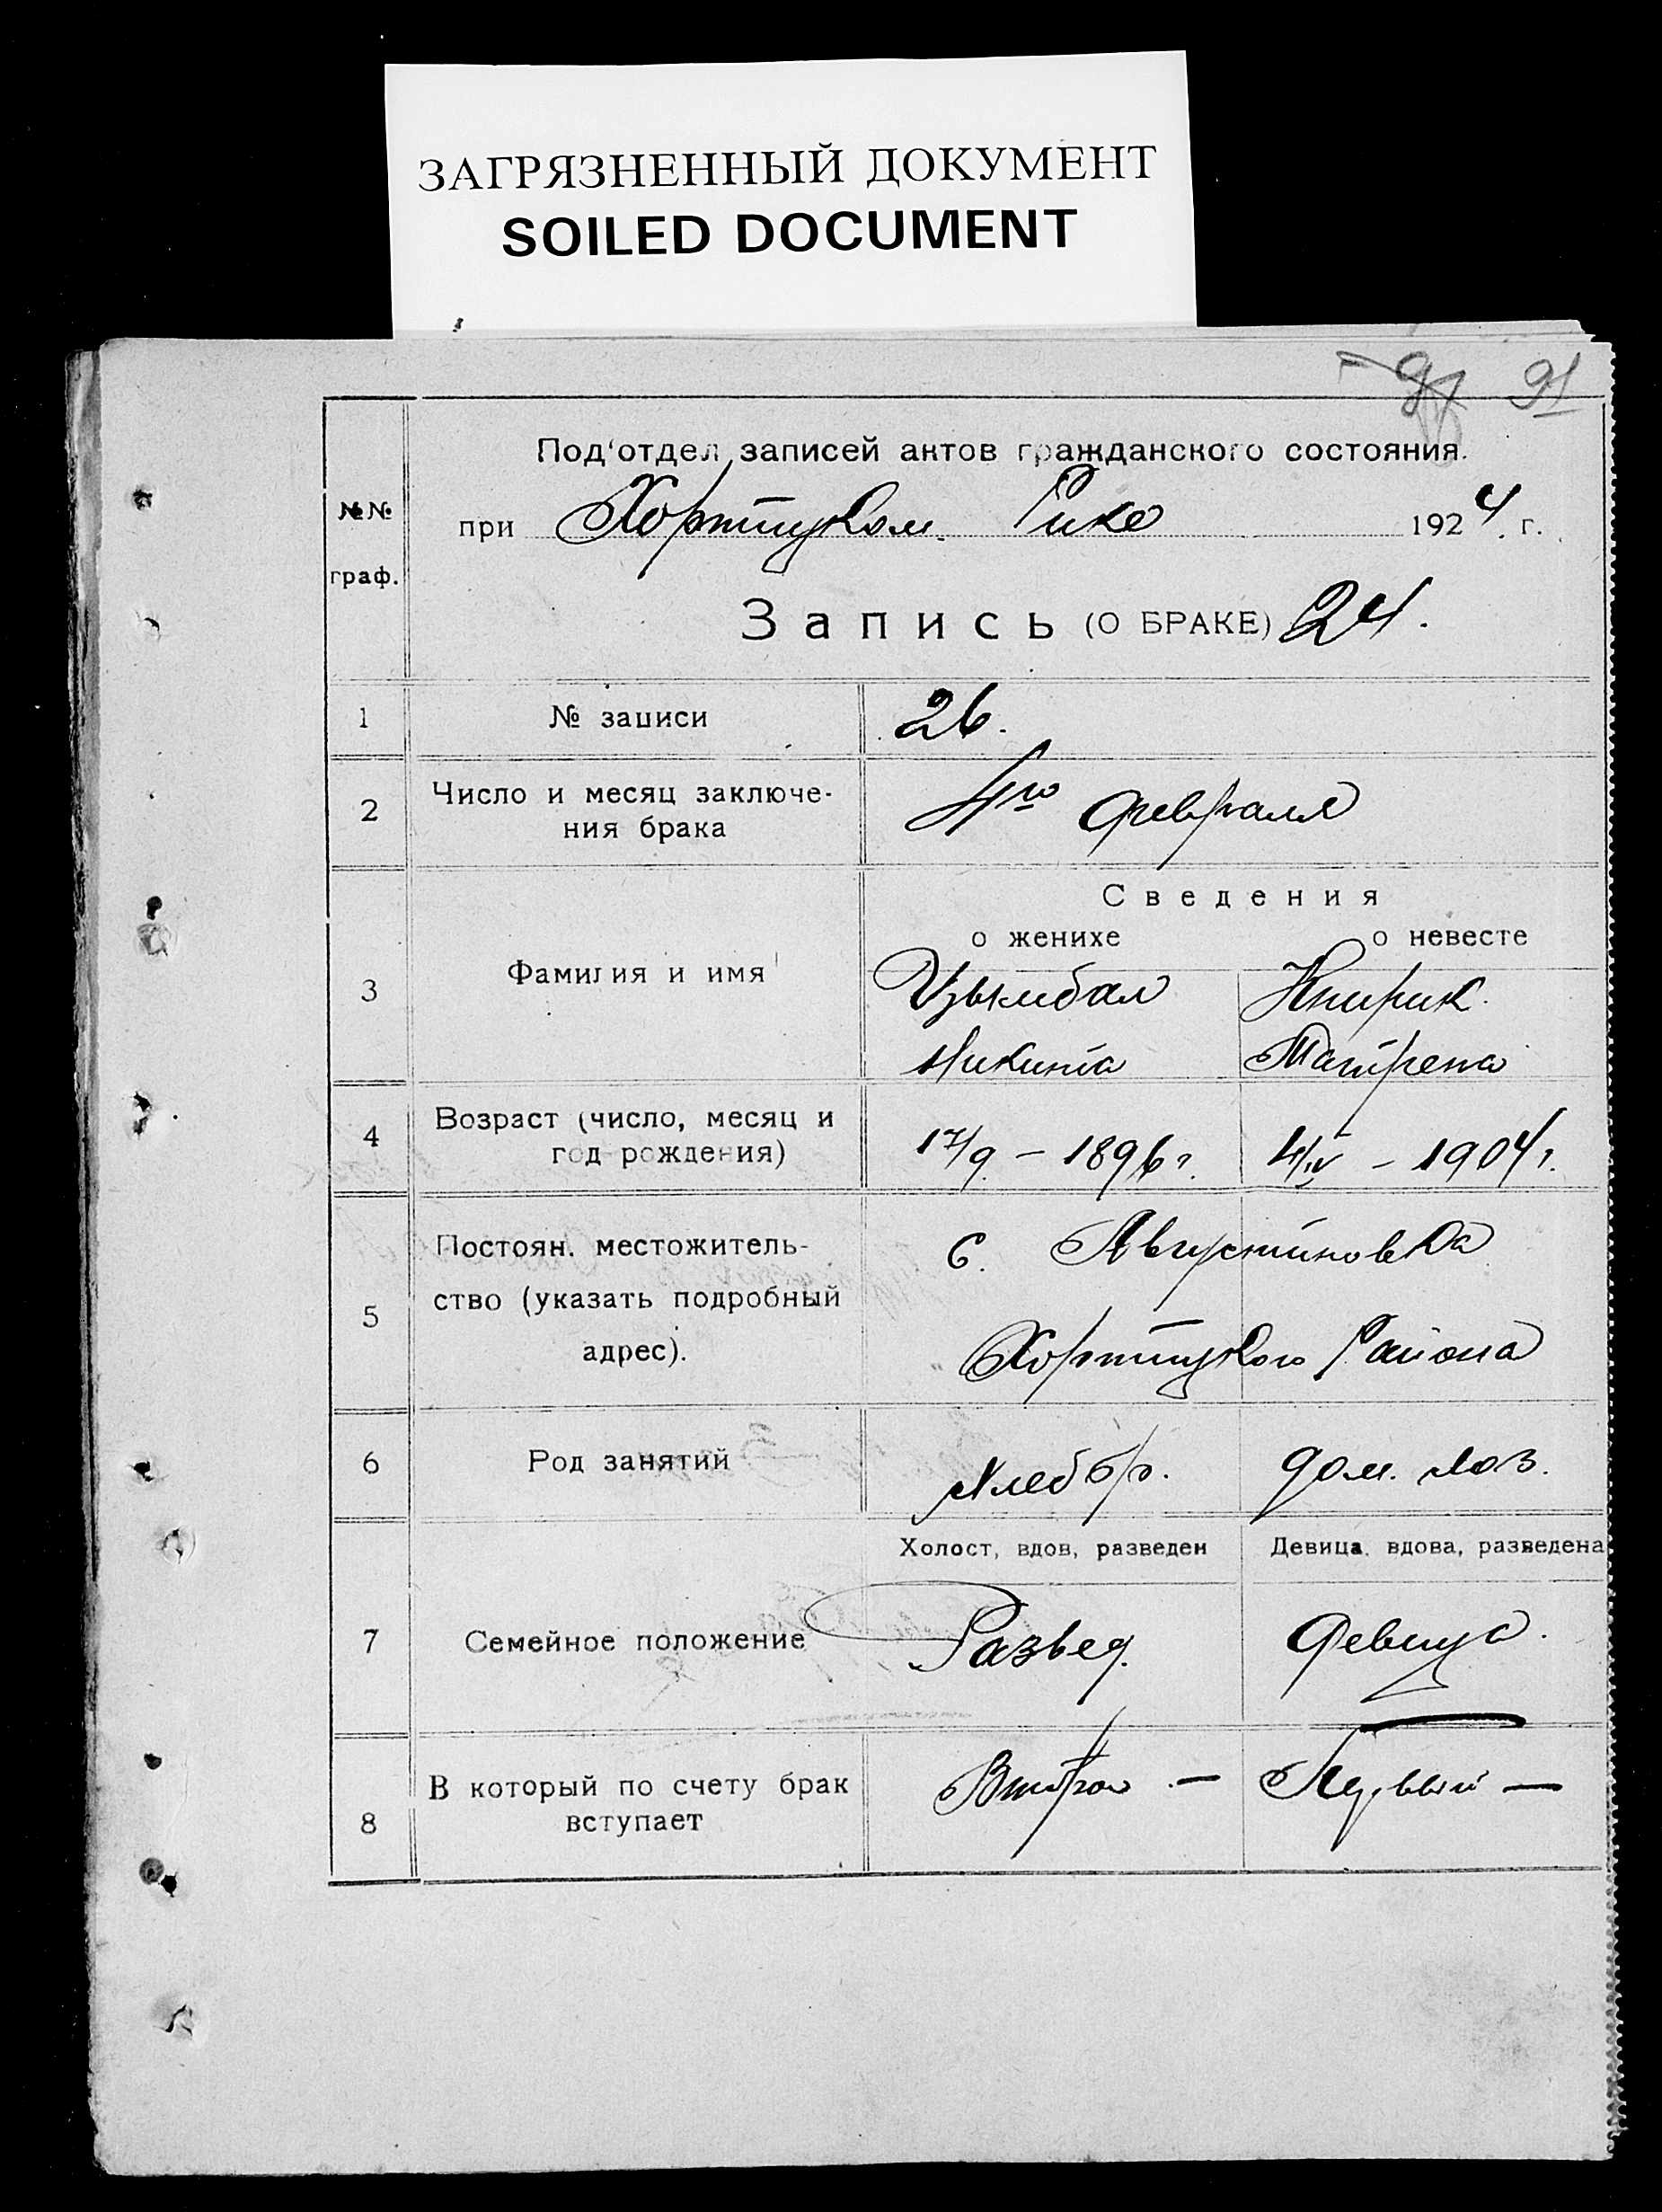 ЗАГРЯЗНЕННЫЙ ДОКУМЕНТ
SOILED DOCUMENT
91
Под'отдел записей актов гражданского состояния.
№№ граф.
при Хортицком Рике 1924 г.
Запись (О БРАКЕ) 24.
1 № записи 26.
2 Число и месяц заключе-
ния брака 4го февраля
Сведения
о женихе о невесте
3 Фамилия и имя Цымбал Книрик
Никита Матрена
4 Возраст (число, месяц и
год рождения) 17/9 – 1896 г. 4/IV – 1904 г.
5 Постоян. местожитель-
ство (указать подробный
адрес).
с. Августиновка
Хортицкого Района
6 Род занятий хлебор. дом. хоз.
Холост, вдов, разведен Девица, вдова, разведена
7 Семейное положение Развед. Девица.
8 В который по счету брак
вступает Второй – Первый –